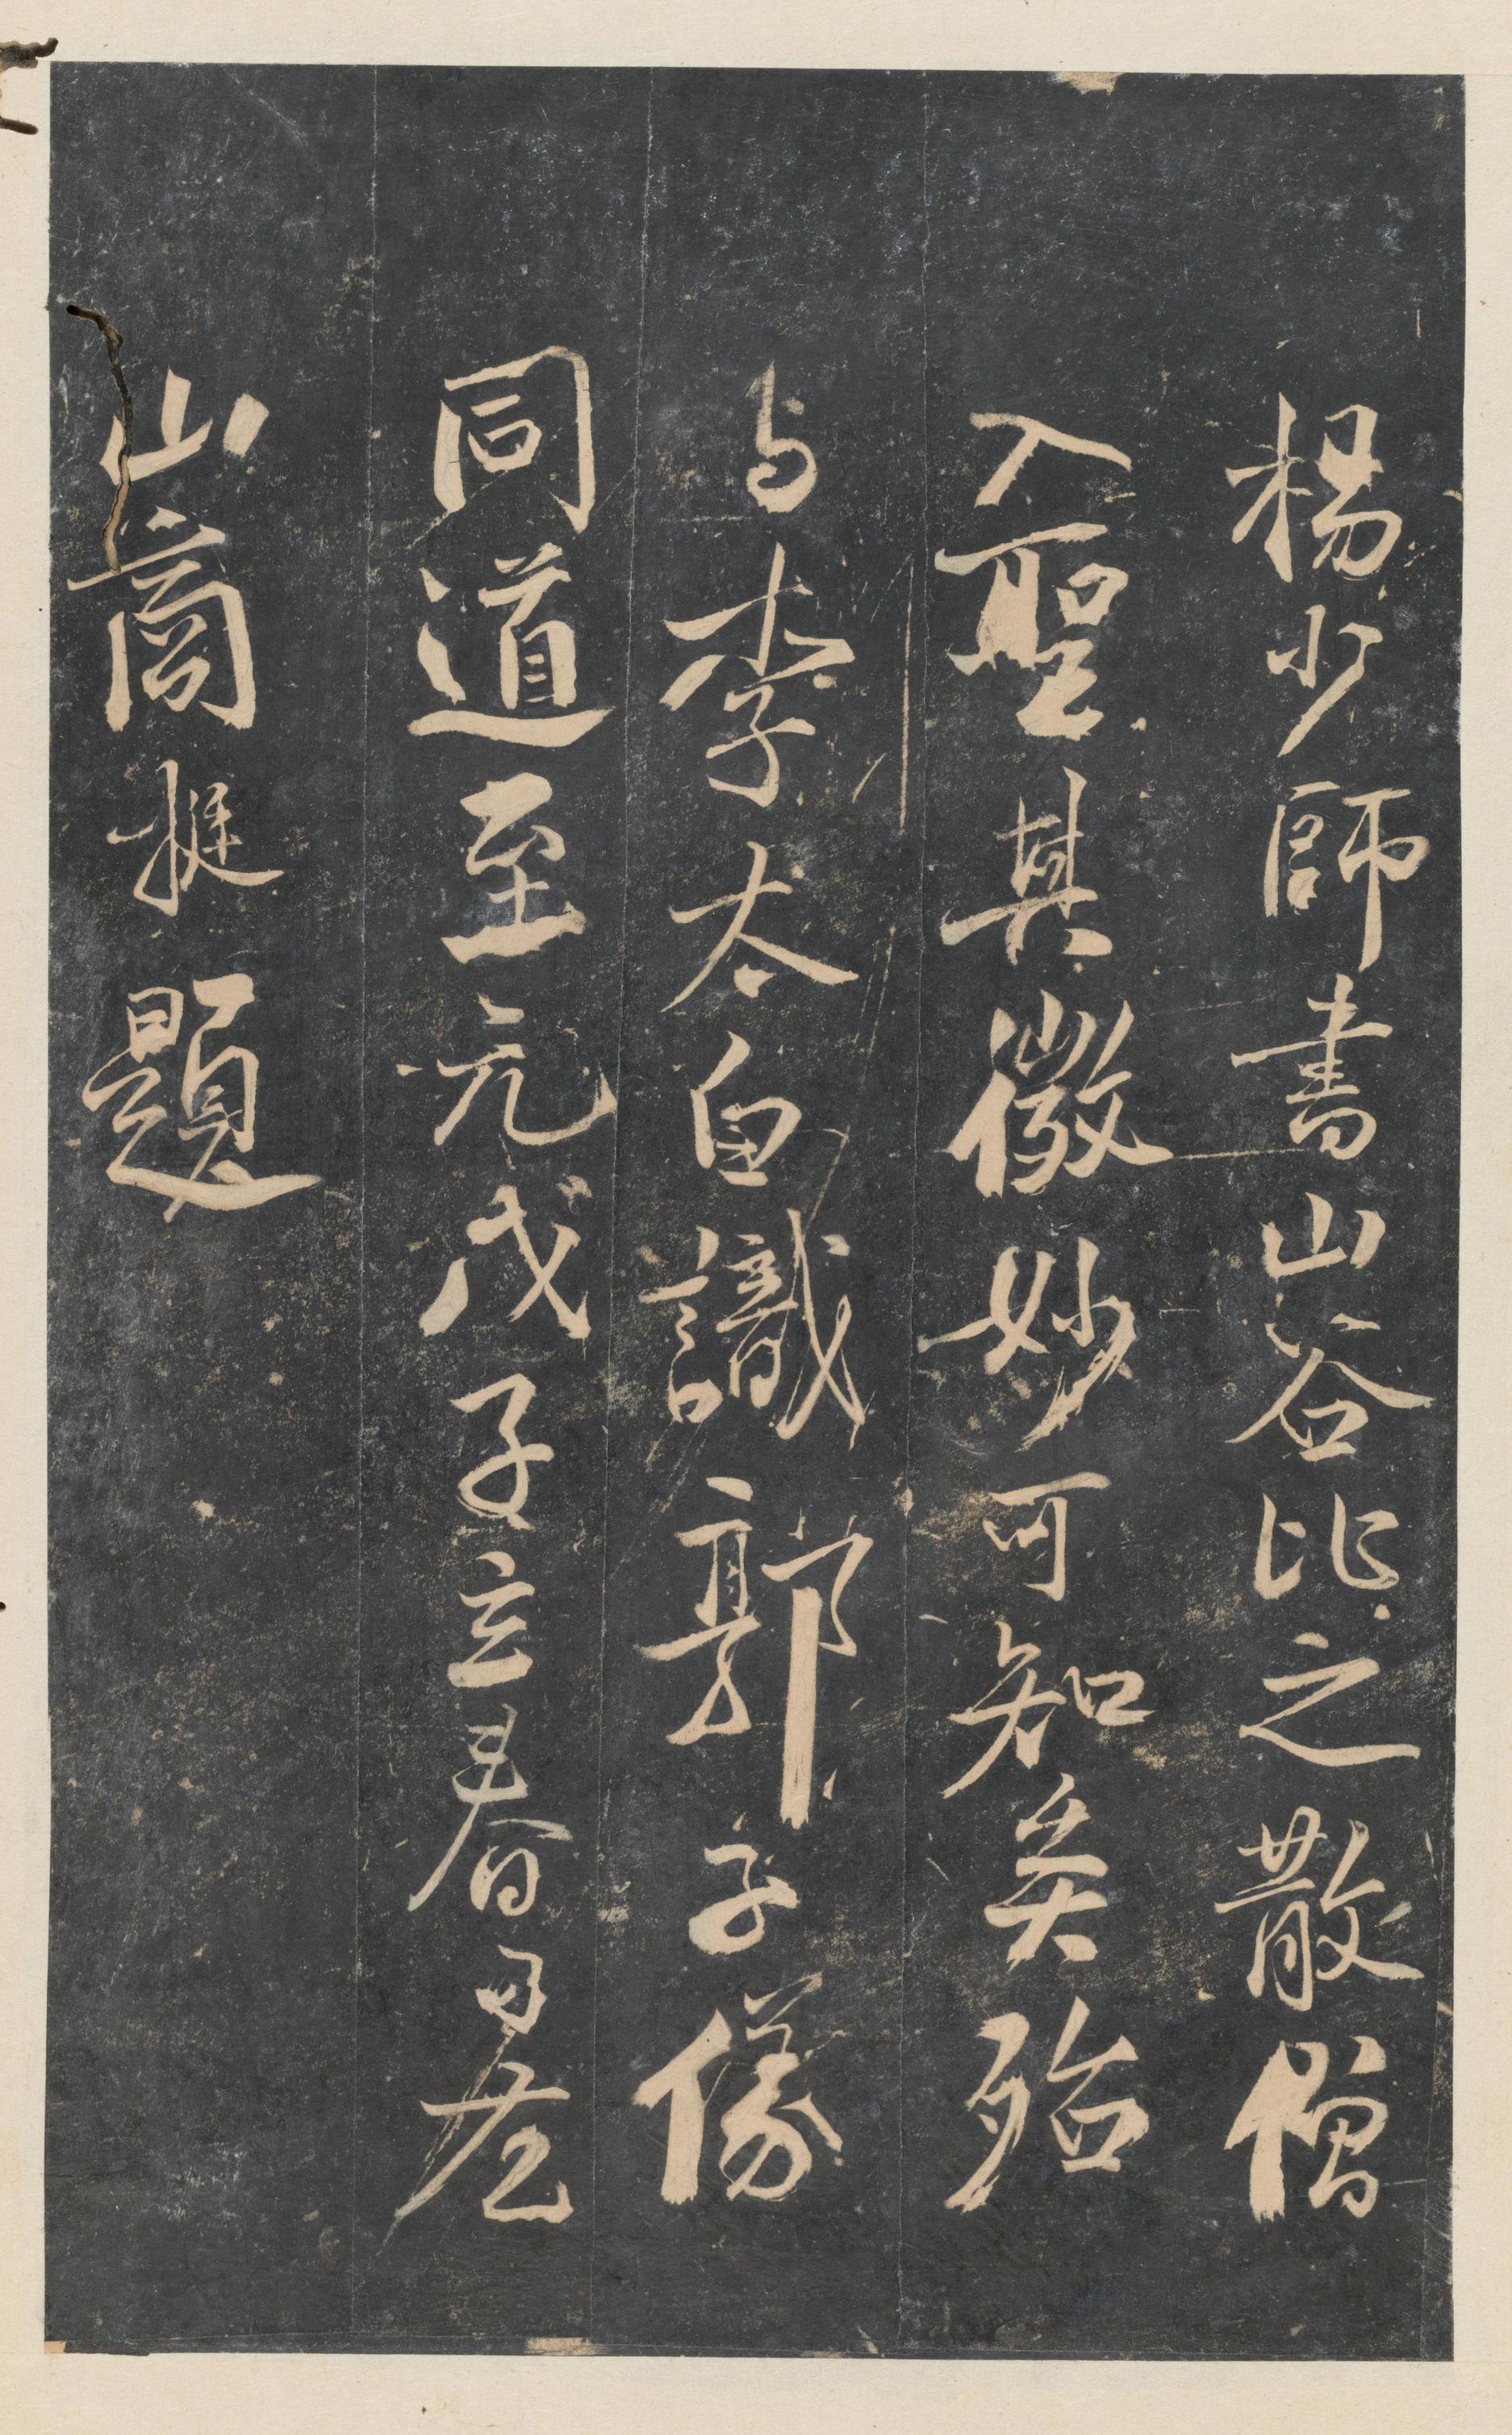 楊少師書山谷比之散僧
入聖其微妙可知矣殆
与李太白識郭子儀
同道至元戊子立春日左
山商挺題